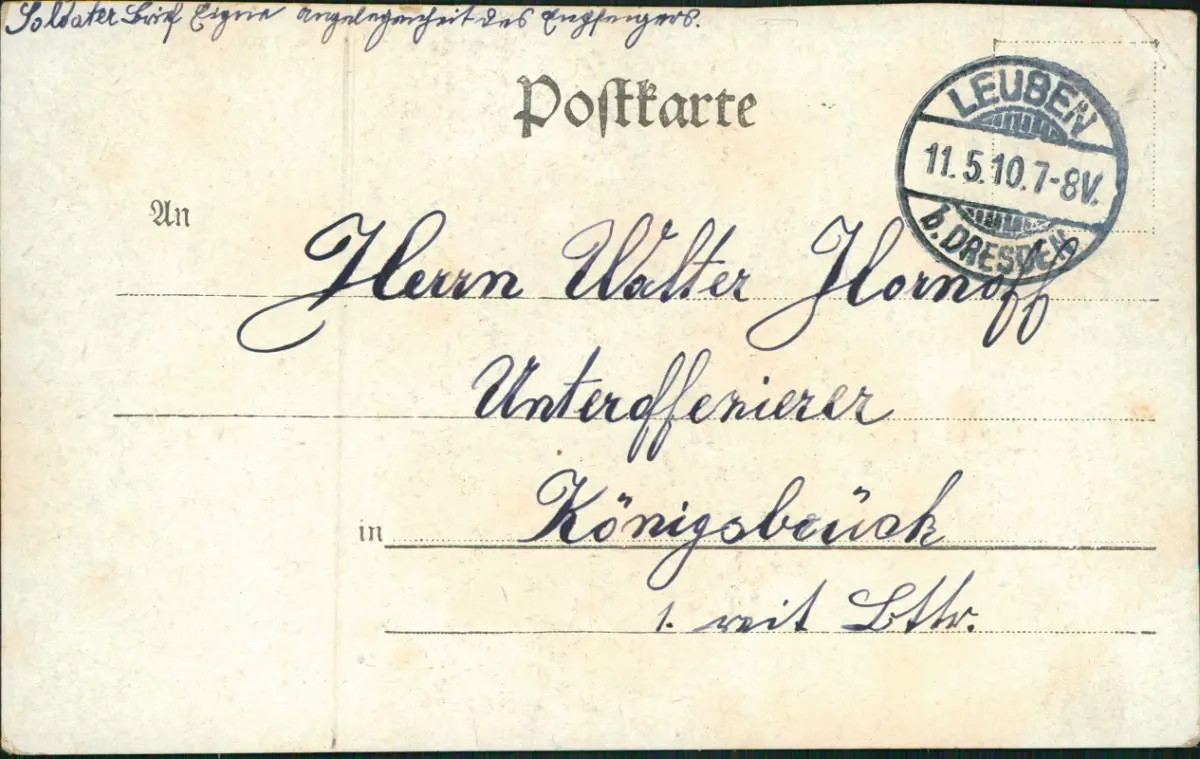 Soldater Brief Eigne Angelegenheit des Empfengers.
Postkarte
LEUBEN
11.5.10.7-8V.
b. DRESDEN
An
Herrn Walter Hornoff
Unteroffenierer
in Königsbrück
1. reit Bttr.